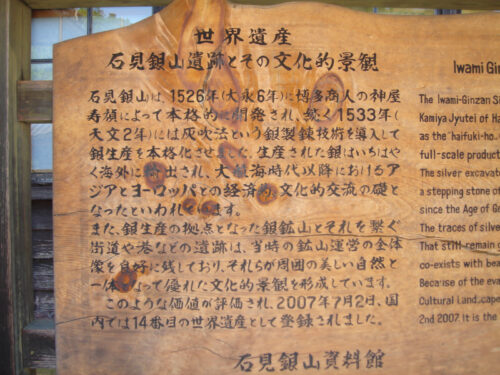 世界遺産
石見銀山遺跡とその文化的景観
石見銀山は、1526年(大永6年)に博多商人の神屋
寿禎によって本格的に開発され、続く1533年(
天文2年)には灰吹法という銀製錬技術を導入して
銀生産を本格化させました。生産された銀はいちはや
く海外に輸出され、大航海時代以降におけるア
ジアとヨーロッパとの経済的、文化的交流の礎と
なったといわれています。
また、銀生産の拠点となった銀鉱山とそれを繋ぐ
街道や港などの遺跡は、当時の鉱山運営の全体
像を良好に残しており、それらが周囲の美しい自然と
一体となって優れた文化的景観を形成しています。
このような価値が評価され、2007年7月2日、国
内では14番目の世界遺産として登録されました。
石見銀山資料館
Iwami Gin
The Iwami-Ginzan Si
Kamiya Jyutei of Ha
as the 'haifuki-ho.
full-scale product
The silver excavate
a stepping stone o
since the Age of Gr
The traces of silve
That still remain
co-exists with bea
Because of the eva
Cultural Landscape
2nd 2007. It is the